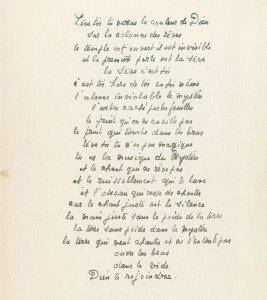 Lève toi tu verras la couleur de Dieu
sur la colonne des rêves
le temple est ouvert il est invisible
et la première porte est la sève
la sève c'est toi
c'est toi hors de toi en toi même
l'atome inviolable le mystère
l'arbre caché par les feuilles
le fruit qu'on ne cueille pas
le fruit qui tombe dans les bras
lève toi tu n'es pas magique
tu es la musique du Mystère
et le chant qui ne répète pas
et le ruissellement qui te lave
et l'oiseau qui cesse de chanter
car le chant juste est le silence
la main juste sous le poids de la terre
la terre sans poids dans le mystère
la terre qui veut chanter et ne s'entend pas
ouvre les bras
dans le vide
Dieu te rejoindra.